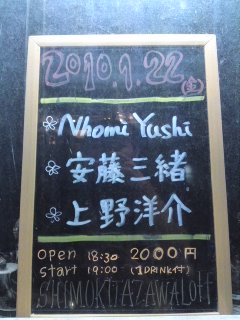 2010.1.22 (金)
Nhomi Yushi
安藤三緒
上野洋介
open 18:30 2000円
start 19:00 (1DRINK付)
SHIMOKITAZAWA LOFT